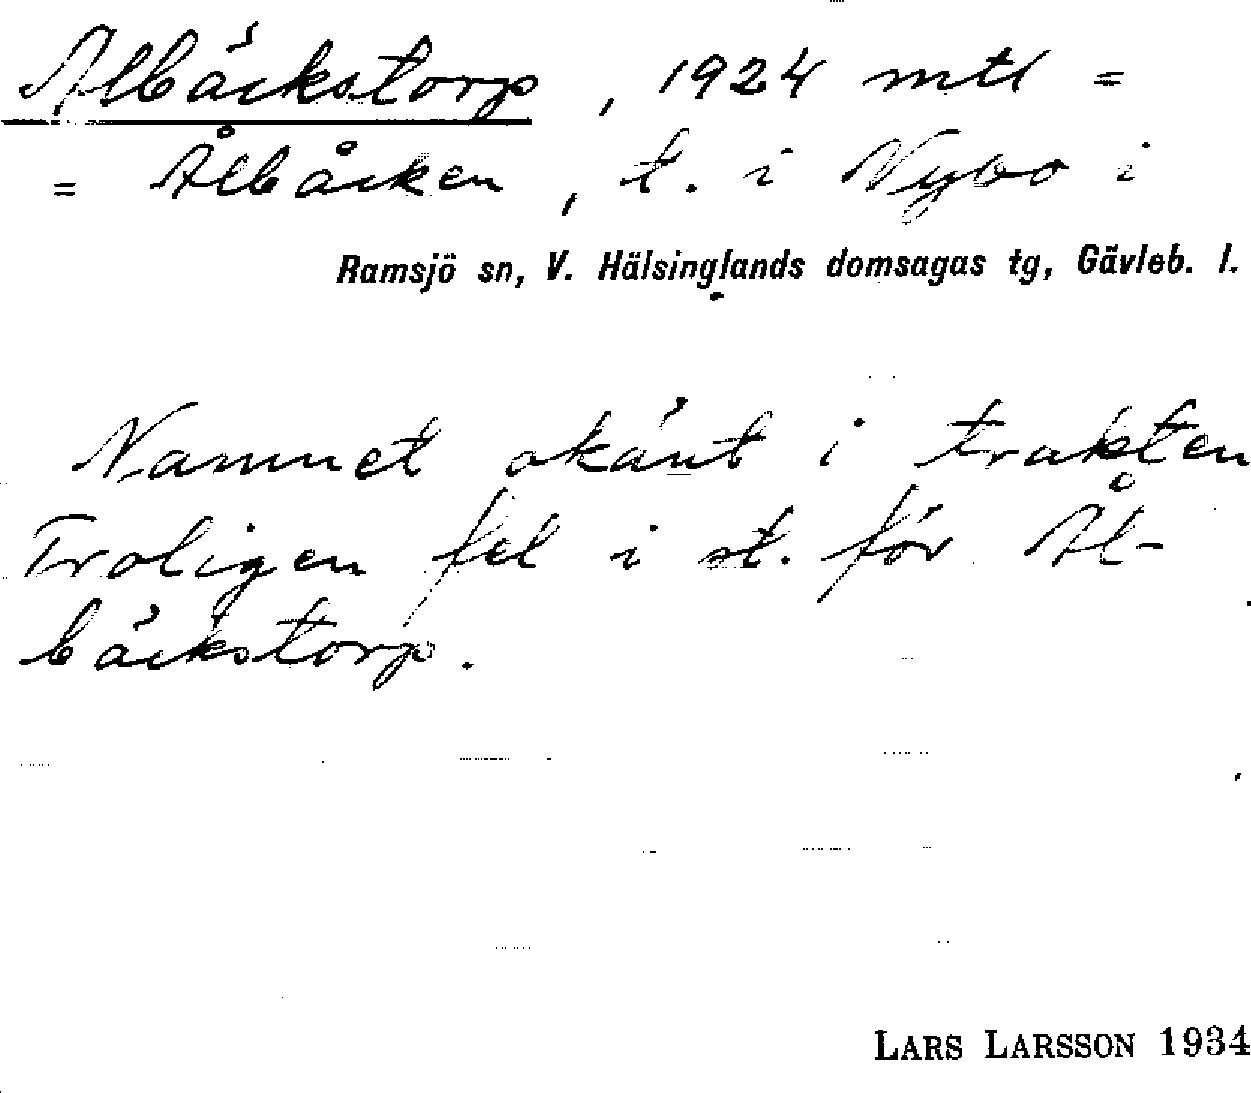 Albäckstorp, 1924 mtl =
= Ålbäcken, t. i Nybo i
Ramsjö sn, V. Hälsinglands domsagas tg, Gävleb. l.
Namnet okänt i trakten
Troligen fel i st. för Ål-
bäckstorp.
LARS LARSSON 1934